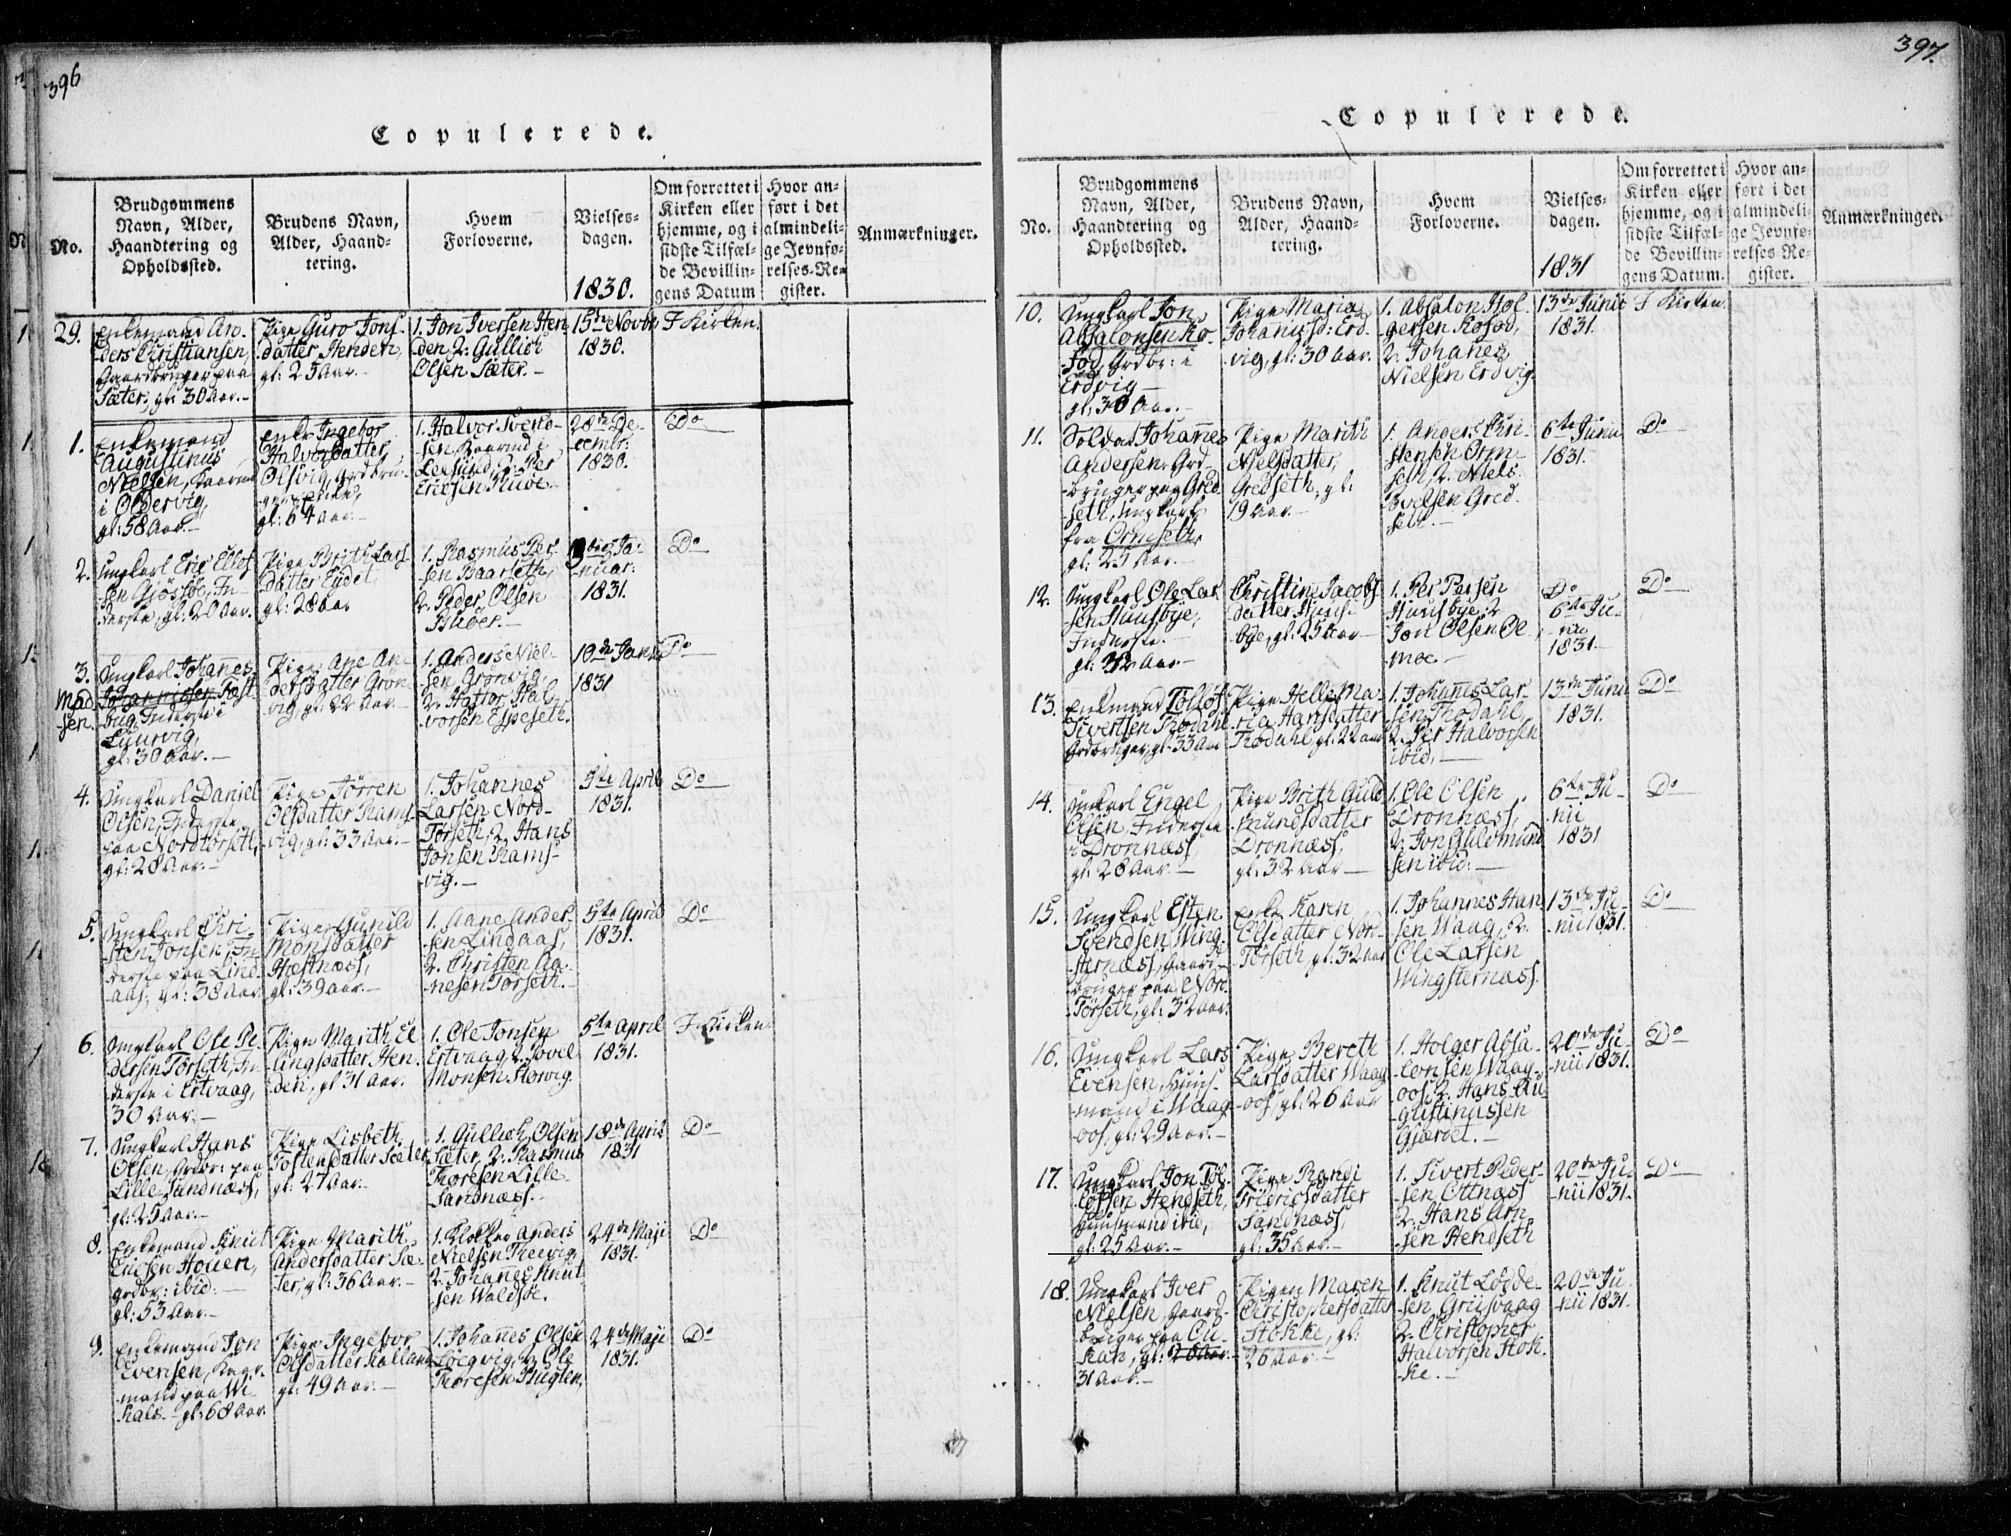 396
Copulerede.
No.
Brudgommens
Navn, Alder,
Haandtering og
Opholdssted.
Brudens Navn,
Alder, Haand-
tering.
Hvem
Forloverne.
Vielses-
dagen.
1830.
Om forrettet i
Kirken eller
hjemme, og i
sidste Tilfæl-
de Bevillin-
gens Datum
Hvor an-
ført i det
almindeli-
ge Jevnfø-
relses-Re-
gister.
Anmærkninger.
29.
Enkemand An-
ders Christiansen,
Gaardbruger paa
Sæter, gl: 30 Aar.-
Pige Guro Jons-
datter Henden,
gl: 25 Aar.-
1. Jon Iversen Hen
den, 2. Gullich
Olsen Sæter.-
15de Novbr
1830.
I Kirken.
1.
Enkemand
Augustinus
Nielsen,
i Oldervig,
gl: 58 Aar.-
Enke Ingebor
Halvorsdatter
Olsvig,
gl: 64 Aar.-
1. Halvor Svend-
sen
2. Per
Ericsen
28de De-
cembr:
1830.
Do
2.
Ungkarl Eric Ellef
sen Giösöe, In-
derste, gl: 20 Aar.
Pige Brith Lars-
datter Eydet,
gl: 28 Aar
1. Rasmus Per-
sen Baarseth,
2. Peder Olsen
Ja-
nuar:
1831.
Do
3.
Mad
sen.
Ungkarl Johannes
Johannissen Fast-
bug, Inderste i
Luurvig,
gl: 30 Aar.-
Pige Ane An-
dersdatter Grön
vig, gl: 22 Aar.-
1. Anders Niel-
sen Grönvig
2. Hal-
vorsen Espeseth.
10de Janu
1831
Do
4.
Ungkarl Daniel
Olsen, Inderste
paa Nordtorseth,
gl: 28 Aar.-
Pige Jörren
Olsdatter Rams-
vig, gl: 33 Aar.-
1. Johannes
Larsen Nord-
Törseth, 2. Hans
Jonsen Rams-
vig.-
5te April
1831.
Do
5.
Ungkarl Chri-
sten Jonsen, In-
derste paa Lind-
aas, gl: 38 Aar
Pige Gunild
Monsdatter
Hestnæss,
gl: 39 Aar.-
1. Aane Ander-
sen Lindaas,
2. Christen Aa-
nesen Törseth.-
5te April
1831.
Do
6.
Ungkarl Ole Pe-
dersen Törseth, In-
derste i Ertvaag,
30 Aar.-
Pige Marith El-
lingsdatter Hen-
den, gl 31 Aar.
1. Ole Jonsen
Ertvaag, 2. Povel
Monsen Storvig.
5te April
1831.
I Kirken.
7.
Ungkarl Hans
Olsen, Grdbr: paa
Lille Sandnæss,
gl: 25 Aar.-
Pige Lisbeth
Tostensdatter Sæter
gl: 27 Aar.-
1. Gullich Olsen
Sæter, 2. Rasmus
Thoresen Lille-
Sandnæss.-
18de April
1831
Do
8.
Enkemand Knut
Ericsen Houen,
Grdbr: ibid:-
gl: 53 Aar.-
Pige Marith
Andersdatter Sæ-
ter, gl: 36 Aar.-
1. Klokker Anders
Nielsen Theevig,
2. Johannes Knut
sen Waldsöe.
24de Maji
1831.
Do
9.
Enkemand Jon
Evensen,
mand paa Wi-
kals.- gl: 68 Aar.
Pige Ingebor
Olsdatter Halland
gl: 49 Aar.-
1. Johannes Olsen
Löegvig, 2. Ole
Thoresen Huglen.
24de Maji
1831.
Do
397.
Copulerede.
No.
Brudgommens
Navn, Alder,
Haandtering og
Opholdssted.
Brudens Navn,
Alder, Haand-
tering.
Hvem
Forloverne.
Vielses-
dagen.
1831
Om forrettet i
Kirken eller
hjemme, og i
sidste Tilfæl-
de Bevillin-
gens Datum.
Hvor an-
ført i det
almindeli-
ge Jevnfø-
relses Re-
gister.
Anmærkninger.
10.
Ungkarl Jon
Absalonsen Ko-
fod, Grdbr: i
Erdvig-
gl: 30 Aar.-
Pige Maria
Johannisd: Erd-
vig, gl: 30 Aar.
1. Absalon Hol-
gersen Kofod,
2. Johannes
Nielsen Erdvig.
13de Junii
1831.
I Kirken.
11.
Soldat Johannes
Andersen, Grd-
bruger paa Gred
seth, Ungkarl
fra Ormseth,
gl: 25 Aar.-
Pige Marith
Nielsdatter,
Gredseth, gl:
19 Aar.-
1. Anders Chri-
stensen Orm-
seth, 2. Niels
Iversen Gred-
seth.-
6te Junii
1831.
Do
12.
Ungkarl Ole Lar
sen Huusbye,
Inderste.-
gl: 32 Aar.-
Christine Jacobs
datter Huus-
bye, gl: 25 Aar
1. Per Persen
Huusbye, 2
Jon Olsen Öe
moe.-
Do
6te Ju-
nii
1831.
Do
13.
Enkemand Tollöf
Sivertsen Rodahl
Grdbruger, gl: 33 Aar
Pige Helle Ma-
ria Hansdatter
Rodahl, gl: 22 Aar
1. Johannes Lar-
sen Rodahl,
2. Per Halvorsen
ibid.-
13de Junii
1831.
Do
14.
Ungkarl Engel
Olsen, Inderste
i Dronnæss,
gl: 28 Aar.-
Pige Brith Guld
mundsdatter
Dronnæss,
gl: 32 Aar-
1. Ole Olsen
Dronnæss,
2. Jon Guldmund
sen ibid:-
6te Ju-
nii
1831
Do
15.
Ungkarl Esten
Svendsen Wing-
sternæss, Gaard-
bruger paa Nord
Törseth, gl: 32 Aar.
Enke Karen
Olsdatter Nord-
Törseth, gl: 32 Aar
1. Johannes Han
sen Waag, 2.
Ole Larsen
Wingsternæss.
13de Ju-
nii 1831.
Do
16.
Ungkarl Lars
Evensen, Huus-
mand i Waag-
oos, gl: 29 Aar.-
Pige Bereth
Larsdatter Waag
oos, gl: 26 Aar
1. Holger Absa-
lonsen Waag-
oos, 2. Hans Au-
gustinussen
Gjærdet.-
20de Ju-
nii 1831.
Do
17.
Ungkarl Jon Tol-
löfsen Hendseth,
Huusmand ibid,
gl: 25 Aar.-
Pige Randi
Fridricsdatter
Sandnæss,
gl: 35 Aar.-
1. Sivert Peder-
sen Ottnæss
2. Hans Arn
sen Hendseth
20de Ju-
nii 1831.
Do
18.
Ungkarl Iver
Nielsen, Gaard-
bruger paa Cu-
kan, gl: 26 Aar.
31 Aar.-
Pigen Maren
Christophersdatter
Stokke, gl:
26 Aar.-
1. Knut Lodde-
sen Griisvaag
2. Christopher
Halvorsen Stok-
ke.-
20de Ju-
nii 1831.